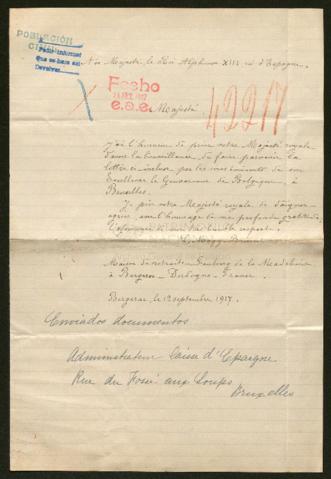 POBLACIÓN
CIVIL
A Sa Majesté, le Roi Alphonse XIII, roi d'Espagne.
Pedir informes
que se hará así
Devolver
Fecho
42217
Majesté
J'ai l'honneur de prier votre Majesté royale
d'avoir la bienveillance de faire parvenir la
lettre ci-incluse par les
Excellence le Gouverneur de Belgique, à
Bruxelles.
Je prie votre Majesté royale de daigner
agréer avec l'hommage de ma profonde gratitude
l'assurance de mon très humble respect.
Maison de retraite Faubourg de la Madeleine
à Bergerac - Dordogne - France
Bergerac le 12 septembre 1917.
Enviados documentos
Administrateur Caisse d'Epargne
Rue du Fossé aux Loups
Bruxelles